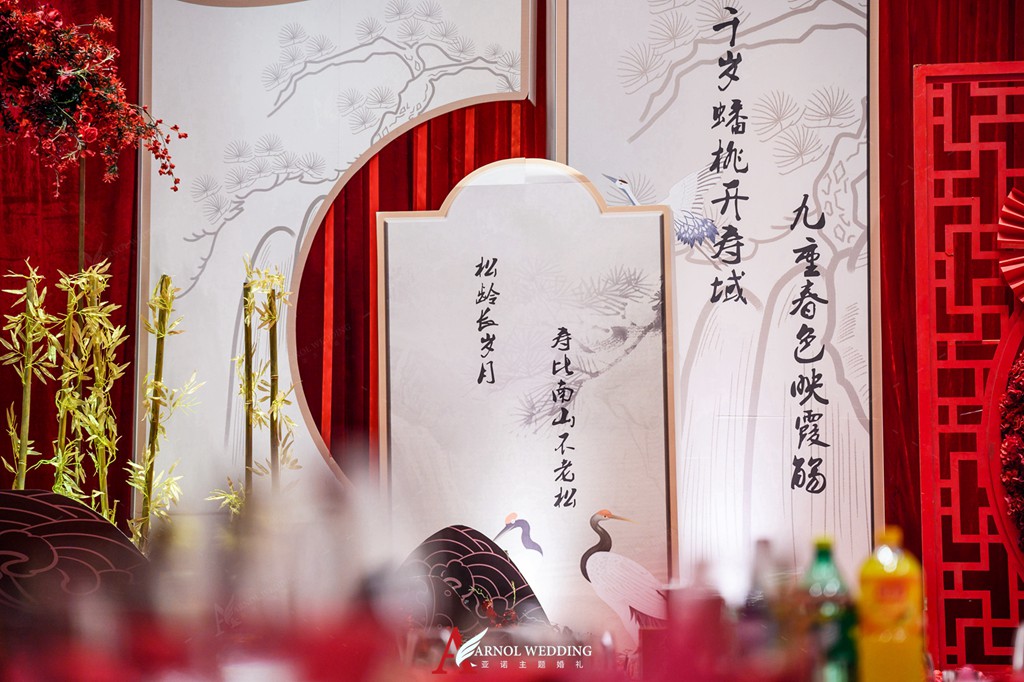 千岁蟠桃开寿域
九重春色映霞觞
松龄长岁月
寿比南山不老松
ARNOL WEDDING
亚诺主题婚礼